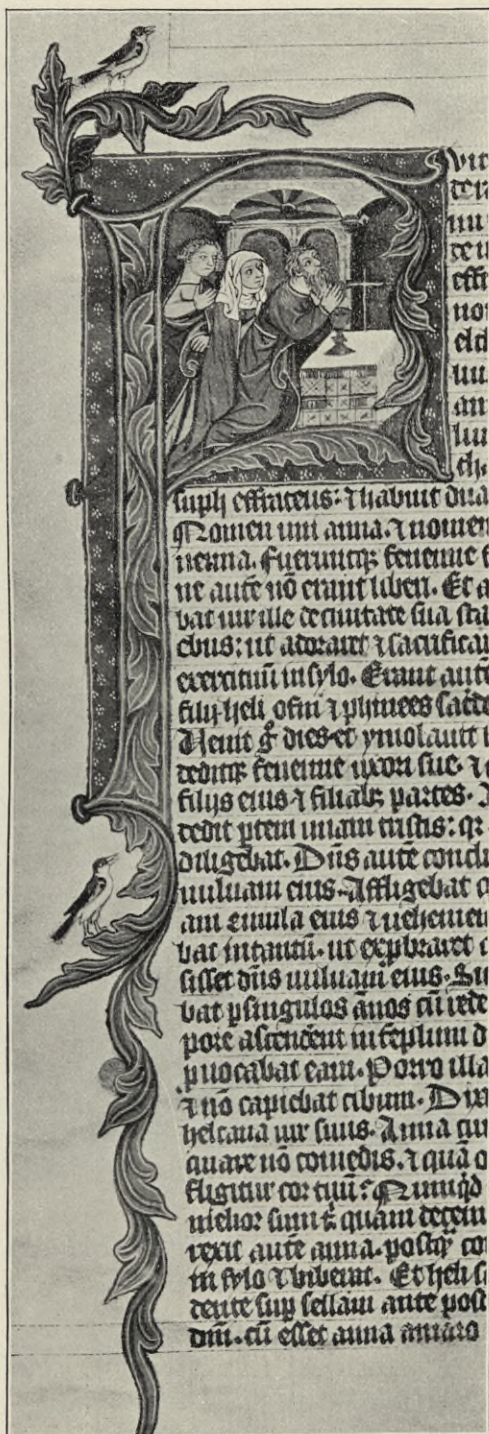 vir
tera
nu
de u
effr
nom
elch
liu.
an
liu
thi
suph effrateus: ⁊ habuit dua
Nomen uni anna. ⁊ nomen
nenna. Fueruntqꝫ fenenne f
ne autē nō erant liberi. Et a
bat uir ille de ciuitate sua sta
ebus: ut adoraret ⁊ sacrificar
exercituū in sylo. Erant autē
filij heli ofni ⁊ phinees sacde
Uenit g̊ dies et ymolauit
deditqꝫ fenenne uxori sue. ⁊
filijs eius ⁊ filiabꝫ partes.
dedit ptem unam tristis: qr
diligebat. Dn̄s autē conclu
uuluam eius. Affligebat
am emula eius ⁊ uehemen
bat intantū. ut exprobraret
sisset dn̄s uuluam eius. Si
bat p singulos ānos cū rede
pore ascenderent in templum d
puocabat eam. Porro illa
⁊ nō capiebat cibum. Dix
helcana uir suus. Anna cu
quare nō comedis. ⁊ quā o
fligitur cor tuū? Nunqd
melior sum t̄ quam decem
rexit autē anna. postqꝫ co
in sylo ⁊ biberat. Et heli s
dente sup sellam ante post
dn̄i. cū esset anna amaro